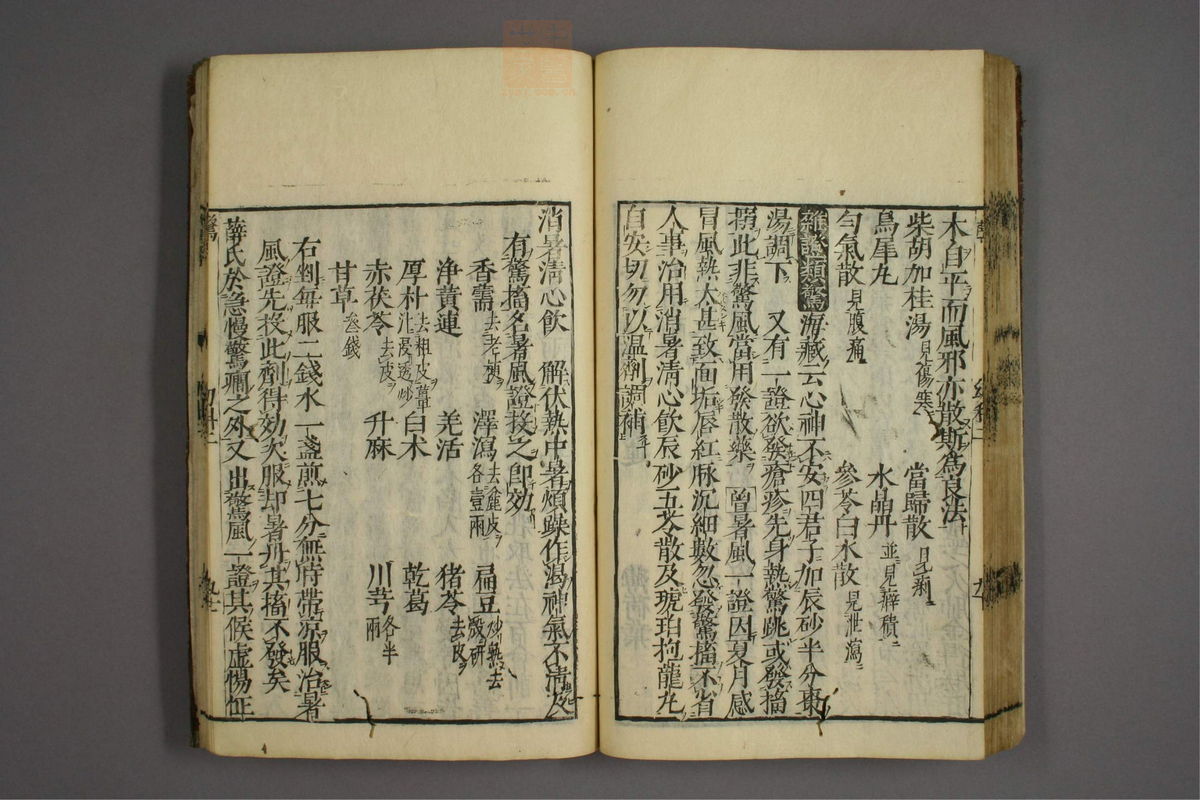 木自平而風邪亦散斯爲良法
柴胡加桂湯見傷寒 當歸散見痢
烏犀丸 水晶丹並見癖積
勻氣散見腹痛 參苓白朮散見泄瀉
雜證類驚 海藏云心神不安四君子加辰砂半分棗
湯調下 又有一證欲發瘡疹先身熱驚跳或發搐
搦此非驚風當用發散藥 曾暑風一證因夏月感
冒風熱太甚致面垢唇紅脉沉細數忽發驚搐不省
人事治用消暑清心飲辰砂五苓散及琥珀抱龍丸
自安切勿以温劑調補
消暑清心飲 解伏熱中暑煩躁作渴神氣不清及
有驚搐名暑風證投之即効
香薷去老梗 澤瀉去麄皮各壹兩 扁豆炒熟去殼研
净黄連 羌活 猪苓去皮
厚朴去粗皮薑汁浸透炒 白术 乾葛
赤茯苓去皮 升麻 川芎各半兩
甘草叁錢
右剉每服二錢水一盞煎七分無時帶凉服治暑
風證先投此劑得効次服却暑丹其搐不發矣
薛氏於急慢驚癎之外又出驚風一證其候虚惕怔
驚
幼科二